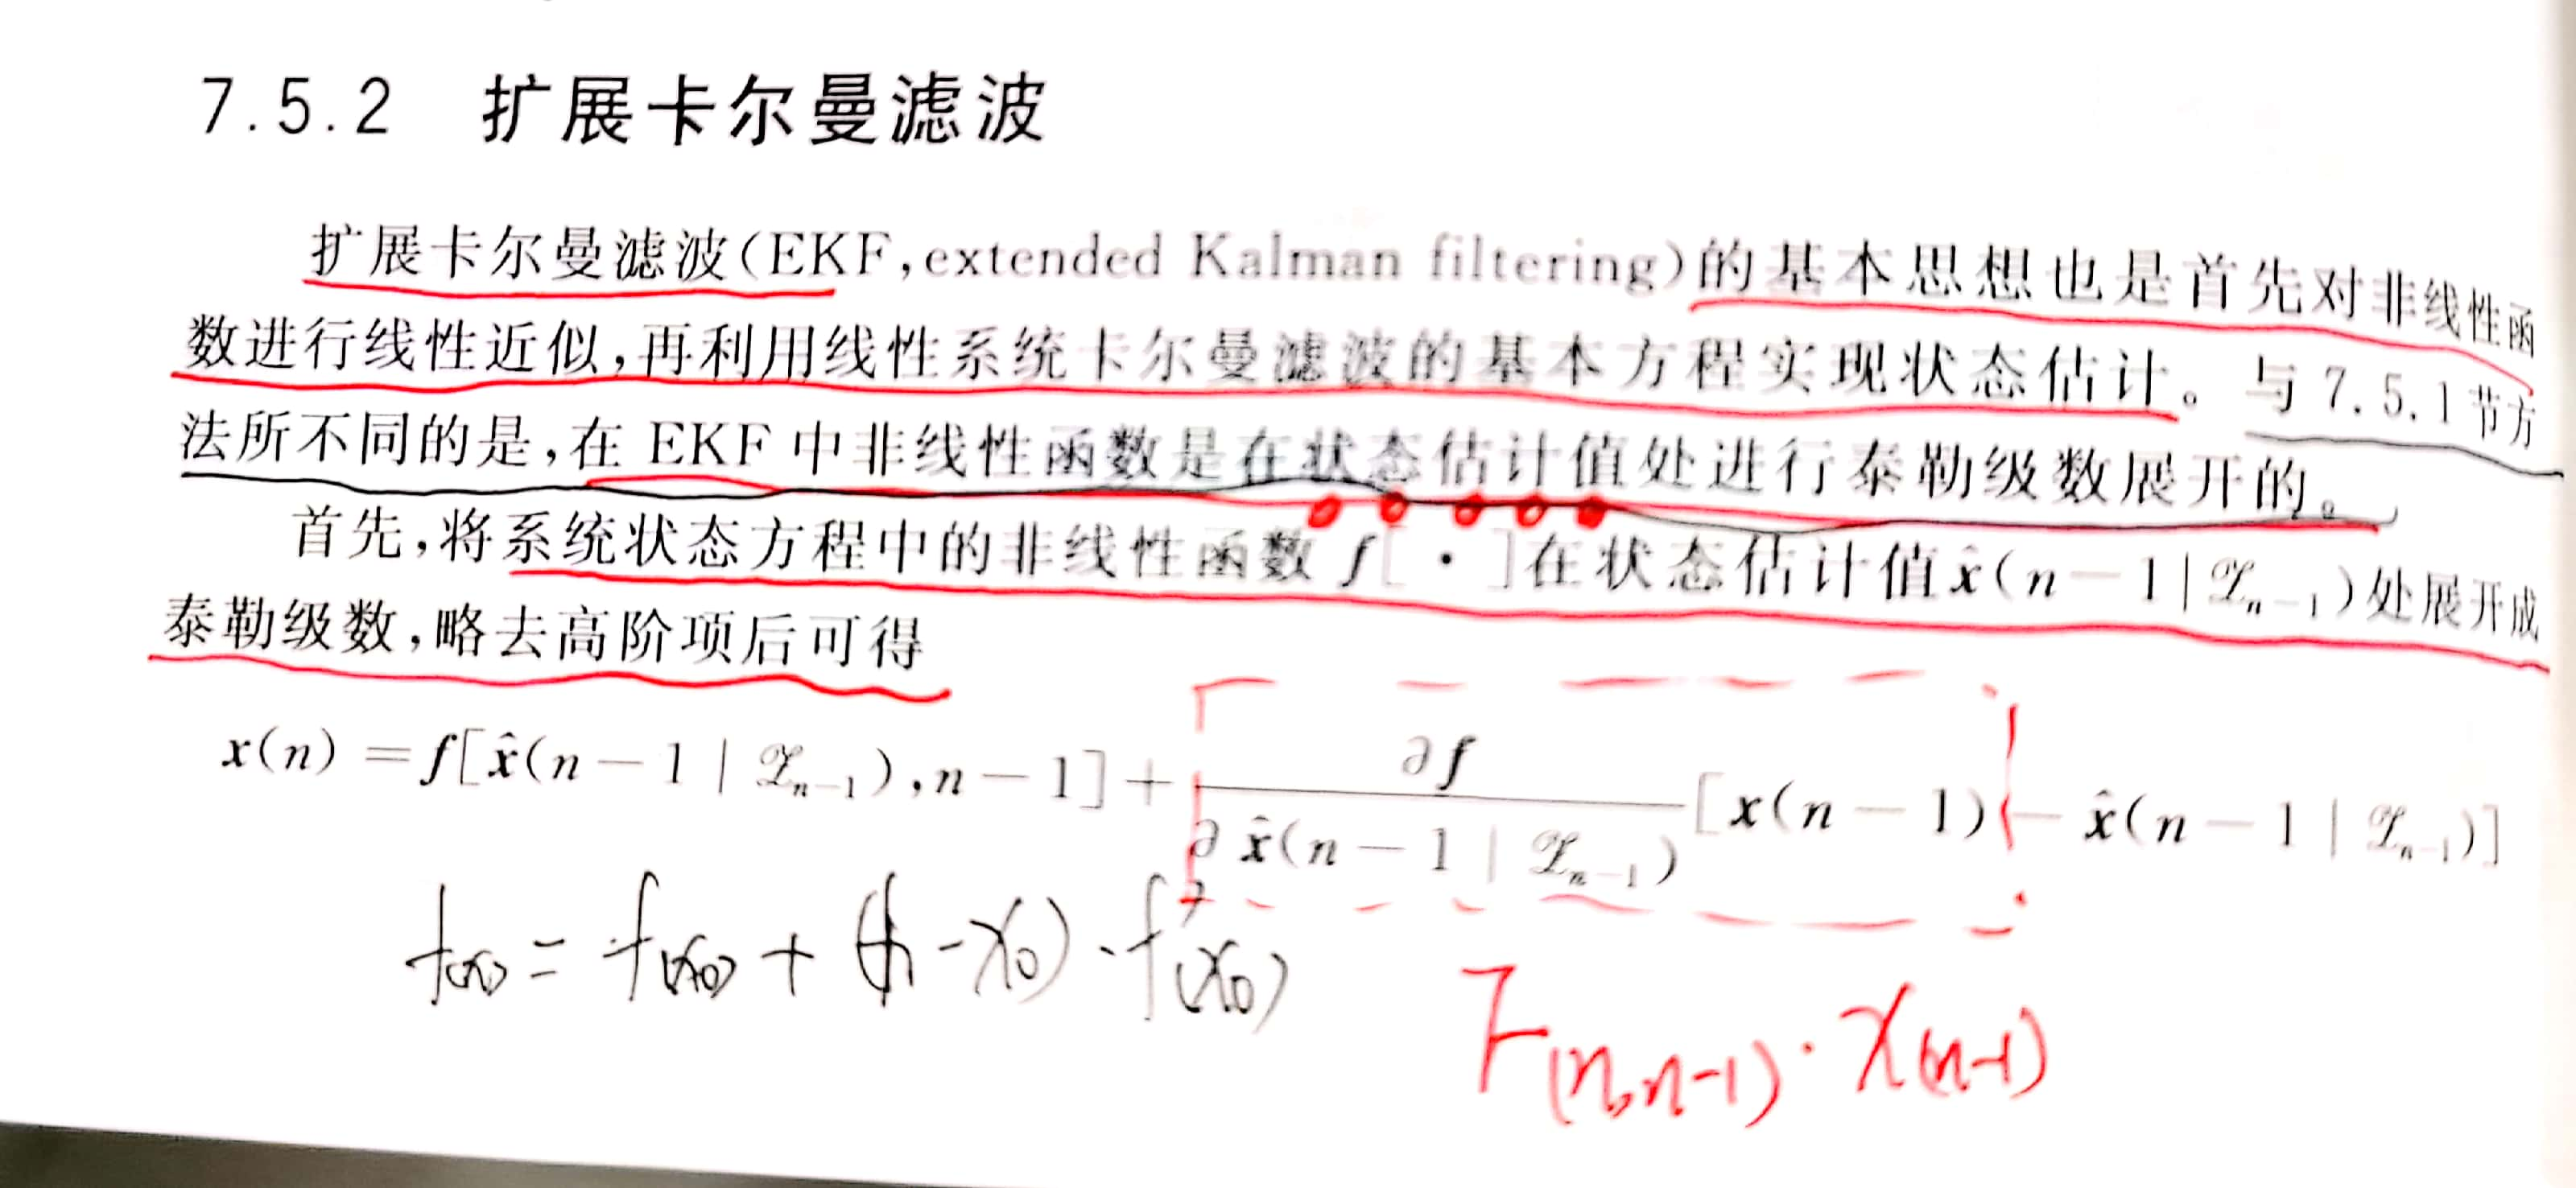 7.5.2 扩展卡尔曼滤波
扩展卡尔曼滤波(EKF,extended Kalman filtering)的基本思想也是首先对非线性函
数进行线性近似,再利用线性系统卡尔曼滤波的基本方程实现状态估计。与 7.5.1 节方
法所不同的是,在 EKF 中非线性函数是在状态估计值处进行泰勒级数展开的。
首先,将系统状态方程中的非线性函数 f[ · ]在状态估计值 x̂(n−1|𝒵ₙ₋₁)处展开成
泰勒级数,略去高阶项后可得
x(n) = f[x̂(n−1 | 𝒵ₙ₋₁),n−1] + ∂f / ∂x̂(n−1 | 𝒵ₙ₋₁) [x(n−1) − x̂(n−1 | 𝒵ₙ₋₁)]
f(x) = f(x₀) + ( -x₀) · f′(x₀)
F(n,n-1) · x(n-1)